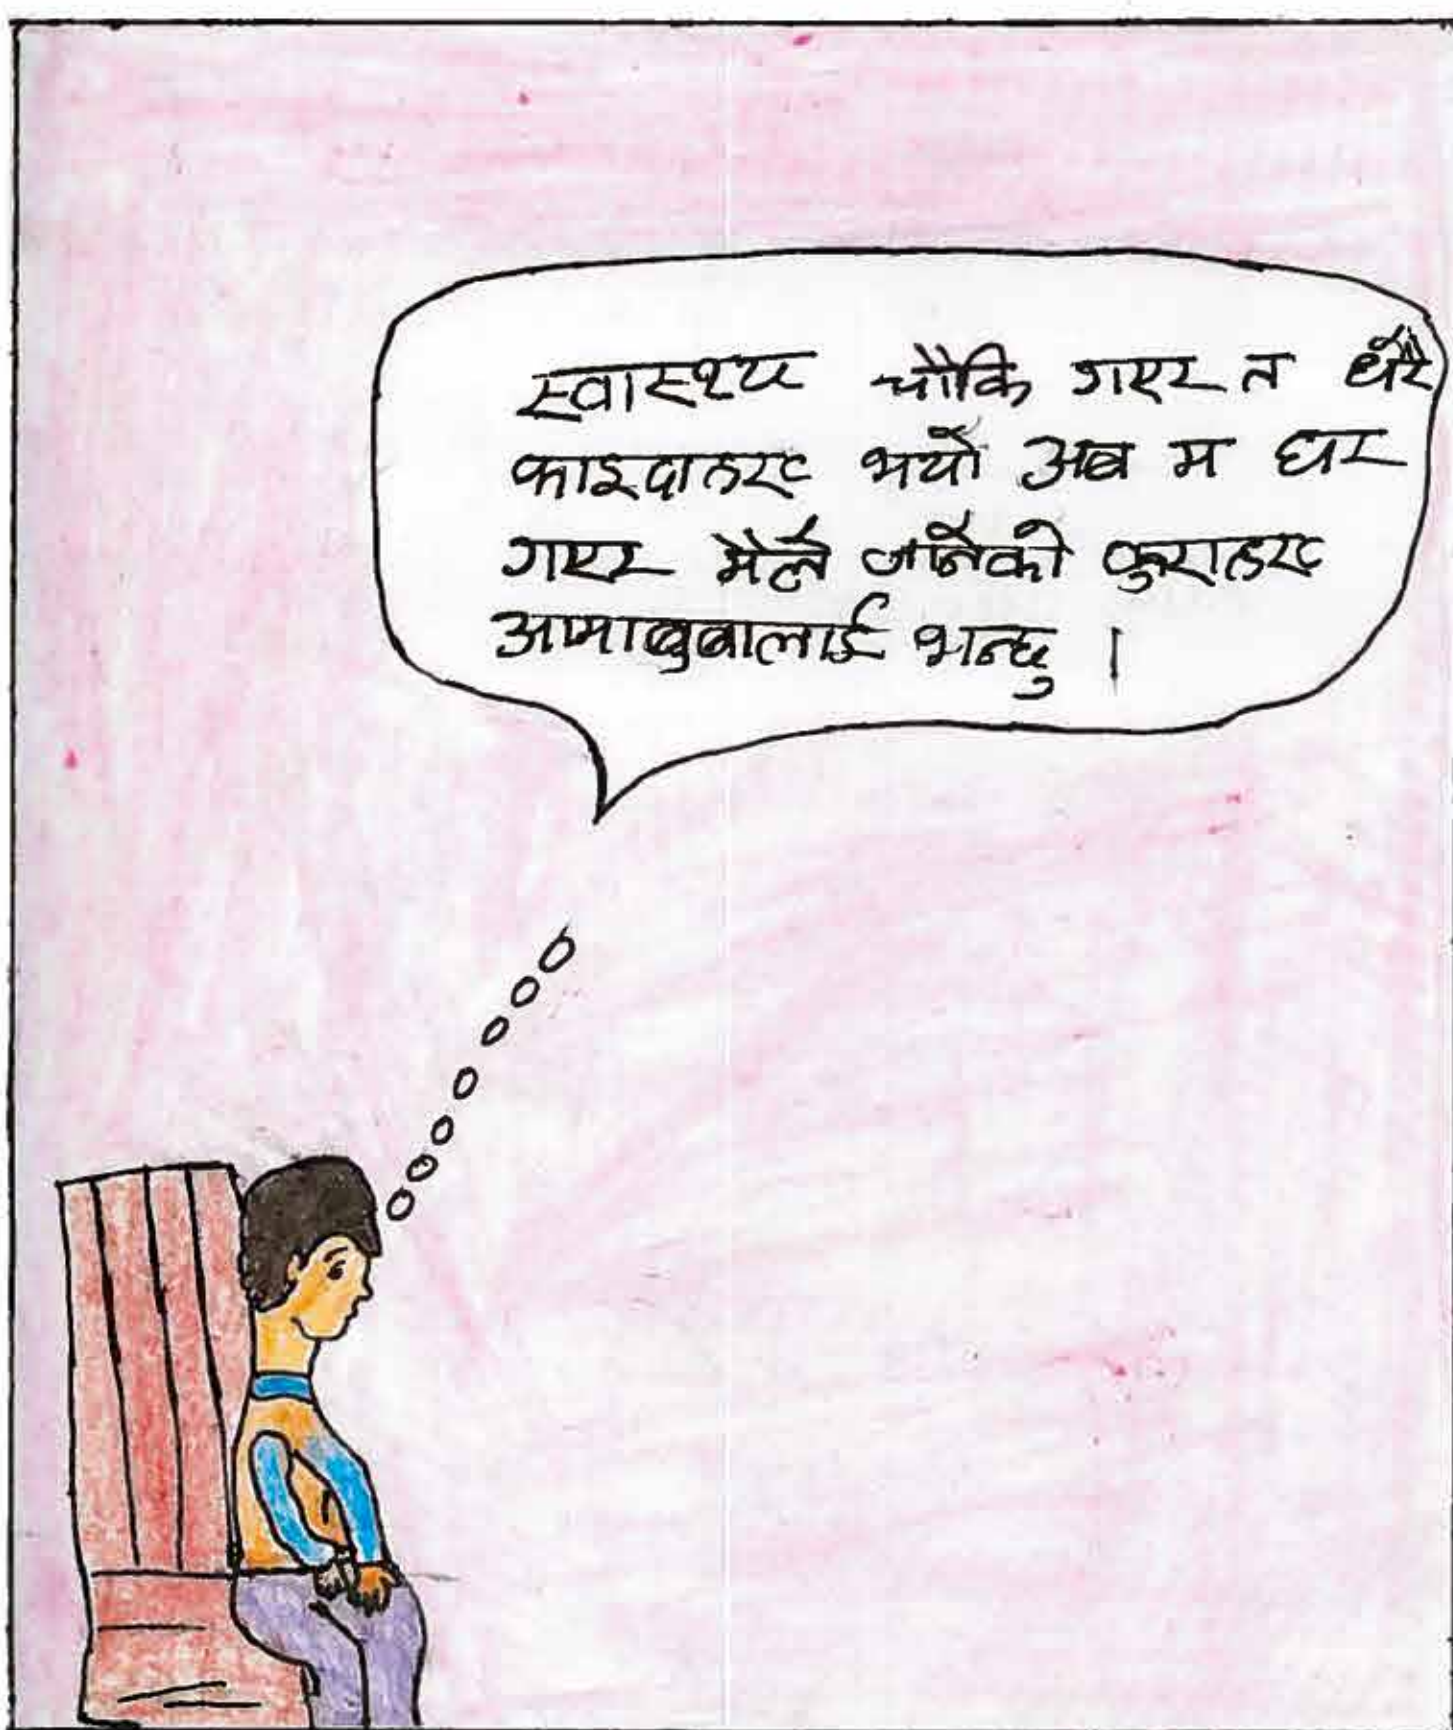 स्वास्थ्य चौकि गएर त धेरै
फाइदाहरु भयो अब म घर
गएर मैले जानेको कुराहरु
आमाबुबालाई भन्छु ।